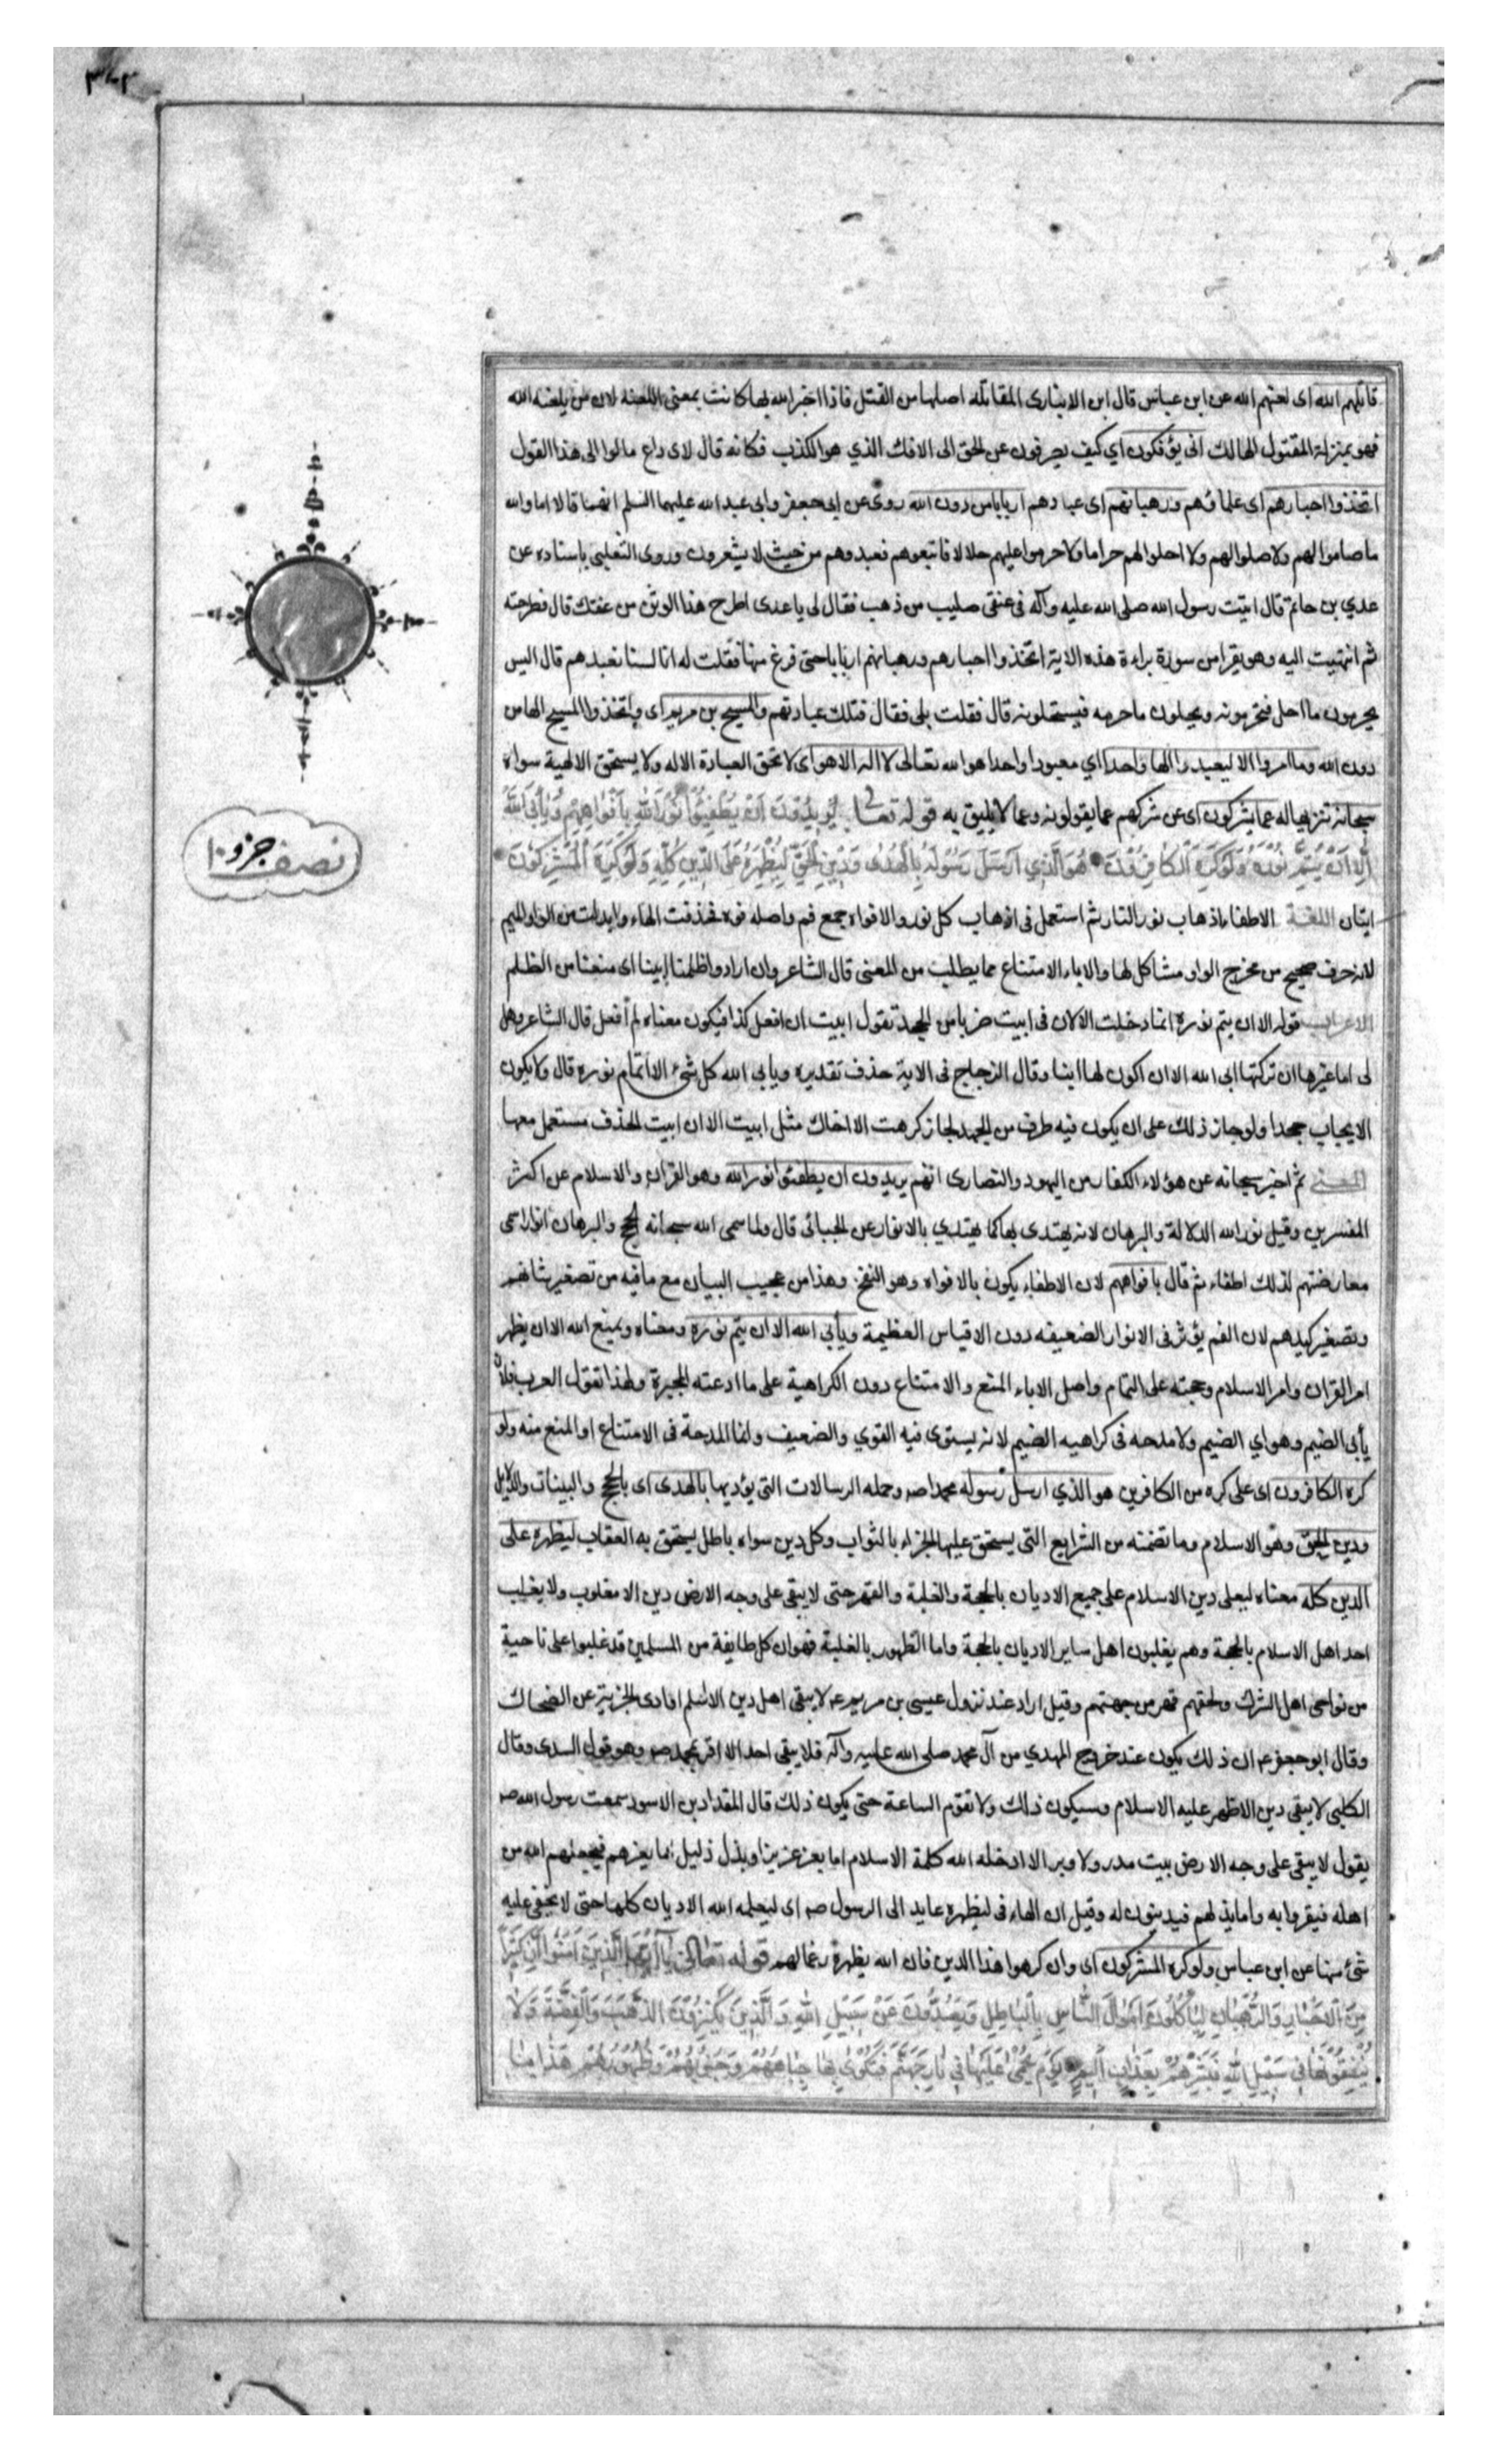 ٣٠٢
قاتلهم الله اى لعنهم الله عن ابن عباس قال ابن الانبارى المقاتلة اصلها من القتل فاذا اخبر الله بها كانت بمعنى اللعنة لان من يلعنه الله
فهو بمنزلة المقتول الهالك انى يؤفكون اي كيف يصرفون عن الحق الى الافك الذي هو الكذب فكانه قال لاى داع مالوا الى هذا القول
اتخذوا احبارهم اى علمائهم ورهبانهم اى عبادهم اربابا من دون الله روى عن ابى جعفر وابى عبد الله عليهما السلم انهما قالا اما والله
ما صاموا لهم ولا صلوا لهم ولا احلوا لهم حراما ولا حرموا عليهم حلالا فاتبعوهم فعبدوهم من حيث لا يشعرون وروى الثعلبى باسناده عن
عدي بن حاتم قال اتيت رسول الله صلى الله عليه وآله فى عنقى صليب من ذهب فقال لى يا عدى اطرح هذا الوثن من عنقك قال فطرحته
ثم انتهيت اليه وهو يقرا من سورة براءة هذه الاية اتخذوا احبارهم ورهبانهم اربابا حتى فرغ منها فقلت له انا لسنا نعبدهم قال اليس
يحرمون ما احل فتحرمونه ويحلون ما حرمه فيستحلونه قال فقلت بلى فقال فتلك عبادتهم والمسيح بن مريم اى واتخذوا المسيح الها من
دون الله وما امروا الا ليعبدوا الها واحدا اي معبودا واحدا هو الله تعالى لا اله الا هو اى لا تحق العبادة الا له ولا يستحق الالهية سواه
سبحانه تنزيها له عما يشركون اى عن شركهم عما يقولونه وعما لا يليق به قوله تعالى يُرِيدُونَ اَنْ يُطْفِئُوا نُورَ اللهِ بِاَفْوَاهِهِمْ وَيَأْبَى اللهُ
اِلَّا اَنْ يُتِمَّ نُورَهُ وَلَوْ كَرِهَ الْكَافِرُونَ هُوَ الَّذِي اَرْسَلَ رَسُولَهُ بِالْهُدٰى وَدِينِ الْحَقِّ لِيُظْهِرَهُ عَلَى الدِّينِ كُلِّهِ وَلَوْ كَرِهَ الْمُشْرِكُونَ
ايتان اللغة الاطفاء اذهاب نور النار ثم استعمل فى اذهاب كل نور والافواه جمع فم واصله فوه فحذفت الهاء وابدلت من الواو الميم
لانه حرف صحيح من مخرج الواو مشاكل لها والاباء الامتناع مما يطلب من المعنى قال الشاعر وان ارادوا ظلمنا ابينا اى منعنا من الظلم
الاعراب قوله الا ان يتم نوره انما دخلت الا لان فى ابيت ضربا من الجحد تقول ابيت ان افعل كذا فيكون معناه لم افعل قال الشاعر وهل
لى ام غيرها ان تركتها ابى الله الا ان اكون لها ابنا وقال الزجاج فى الاية حذف تقديره ويابى الله كل شىء الا اتمام نوره قال ولا يكون
الايجاب جحدا ولو جاز ذلك على ان يكون فيه طرف من الجحد لجاز كرهت الا اخاك مثل ابيت الا ان ابيت الحذف مستعمل معها
المعنى ثم اخبر سبحانه عن هؤلاء الكفار من اليهود والنصارى انهم يريدون ان يطفئوا نور الله وهو القران والاسلام عن اكثر
المفسرين وقيل نور الله الدلالة والبرهان لانه يهتدى بها كما يهتدي بالانوار عن الجبائى قال ولما سمى الله سبحانه الحجج والبرهان انوارا سمى
معارضتهم لذلك اطفاء ثم قال بافواههم لان الاطفاء يكون بالافواه وهو النفخ وهذا من عجيب البيان مع ما فيه من تصغير شانهم
وتصغير كيدهم لان الفم يؤثر فى الانوار الضعيفه دون الاقباس العظيمة ويأبى الله الا ان يتم نوره ومعناه ويمنع الله الا ان يظهر
امر القران وامر الاسلام وحجته على التمام واصل الاباء المنع والامتناع دون الكراهية على ما ادعته المجبرة ولهذا تقول العرب فلان
يأبى الضيم وهو ابي الضيم ولا مدحه فى كراهيه الضيم لانه يستوى فيه القوي والضعيف وانما المدحة فى الامتناع او المنع منه ولو
كره الكافرون اى على كره من الكافرين هو الذي ارسل رسوله محمدا صه وحمله الرسالات التى يؤديها بالهدى اى بالحجج والبينات والدلايل
ودين الحق وهو الاسلام وما تضمنه من الشرايع التى يستحق عليها الجزاء بالثواب وكل دين سواه باطل يستحق به العقاب ليظهره على
الدين كله معناه ليعلى دين الاسلام على جميع الاديان بالحجة والغلبة والقهر حتى لا يبقى على وجه الارض دين الا مغلوب ولا يغلب
احد اهل الاسلام بالحجة وهم يغلبون اهل ساير الاديان بالحجة واما الظهور بالغلبة فهو ان كل طايفة من المسلمين قد غلبوا على ناحية
من نواحى اهل الشرك ولحقهم قهر من جهتهم وقيل اراد عند نزول عيسى بن مريم عم لا يبقى اهل دين الا اسلم او ادى الجزية عن الضحاك
وقال ابو جعفر عم ان ذلك يكون عند خروج المهدي من آل محمد صلى الله عليه وآله فلا يبقى احد الا اقر بمحمد صه وهو قول السدى وقال
الكلبى لا يبقى دين الا ظهر عليه الاسلام وسيكون ذلك ولا تقوم الساعة حتى يكون ذلك قال المقداد بن الاسود سمعت رسول الله صه
يقول لا يبقى على وجه الارض بيت مدر ولا وبر الا ادخله الله كلمة الاسلام اما بعز عزيز او بذل ذليل اما يعزهم فيجعلهم الله من
اهله فيقروا به واما يذلهم فيدينون له وقيل ان الهاء فى ليظهره عايد الى الرسول صه اى ليعلمه الله الاديان كلها حتى لا يخفى عليه
شىء منها عن ابن عباس ولو كره المشركون اى وان كرهوا هذا الدين فان الله يظهره رغما لهم قوله تعالى يَا اَيُّهَا الَّذِينَ اٰمَنُوا اِنَّ كَثِيرًا
مِنَ الْاَحْبَارِ وَالرُّهْبَانِ لَيَأْكُلُونَ اَمْوَالَ النَّاسِ بِالْبَاطِلِ وَيَصُدُّونَ عَنْ سَبِيلِ اللهِ وَالَّذِينَ يَكْنِزُونَ الذَّهَبَ وَالْفِضَّةَ وَلَا
يُنْفِقُونَهَا فِى سَبِيلِ اللهِ فَبَشِّرْهُمْ بِعَذَابٍ اَلِيمٍ يَوْمَ يُحْمٰى عَلَيْهَا فِي نَارِ جَهَنَّمَ فَتُكْوٰى بِهَا جِبَاهُهُمْ وَجُنُوبُهُمْ وَظُهُورُهُمْ هٰذَا مَا
نصف جزو ١٠